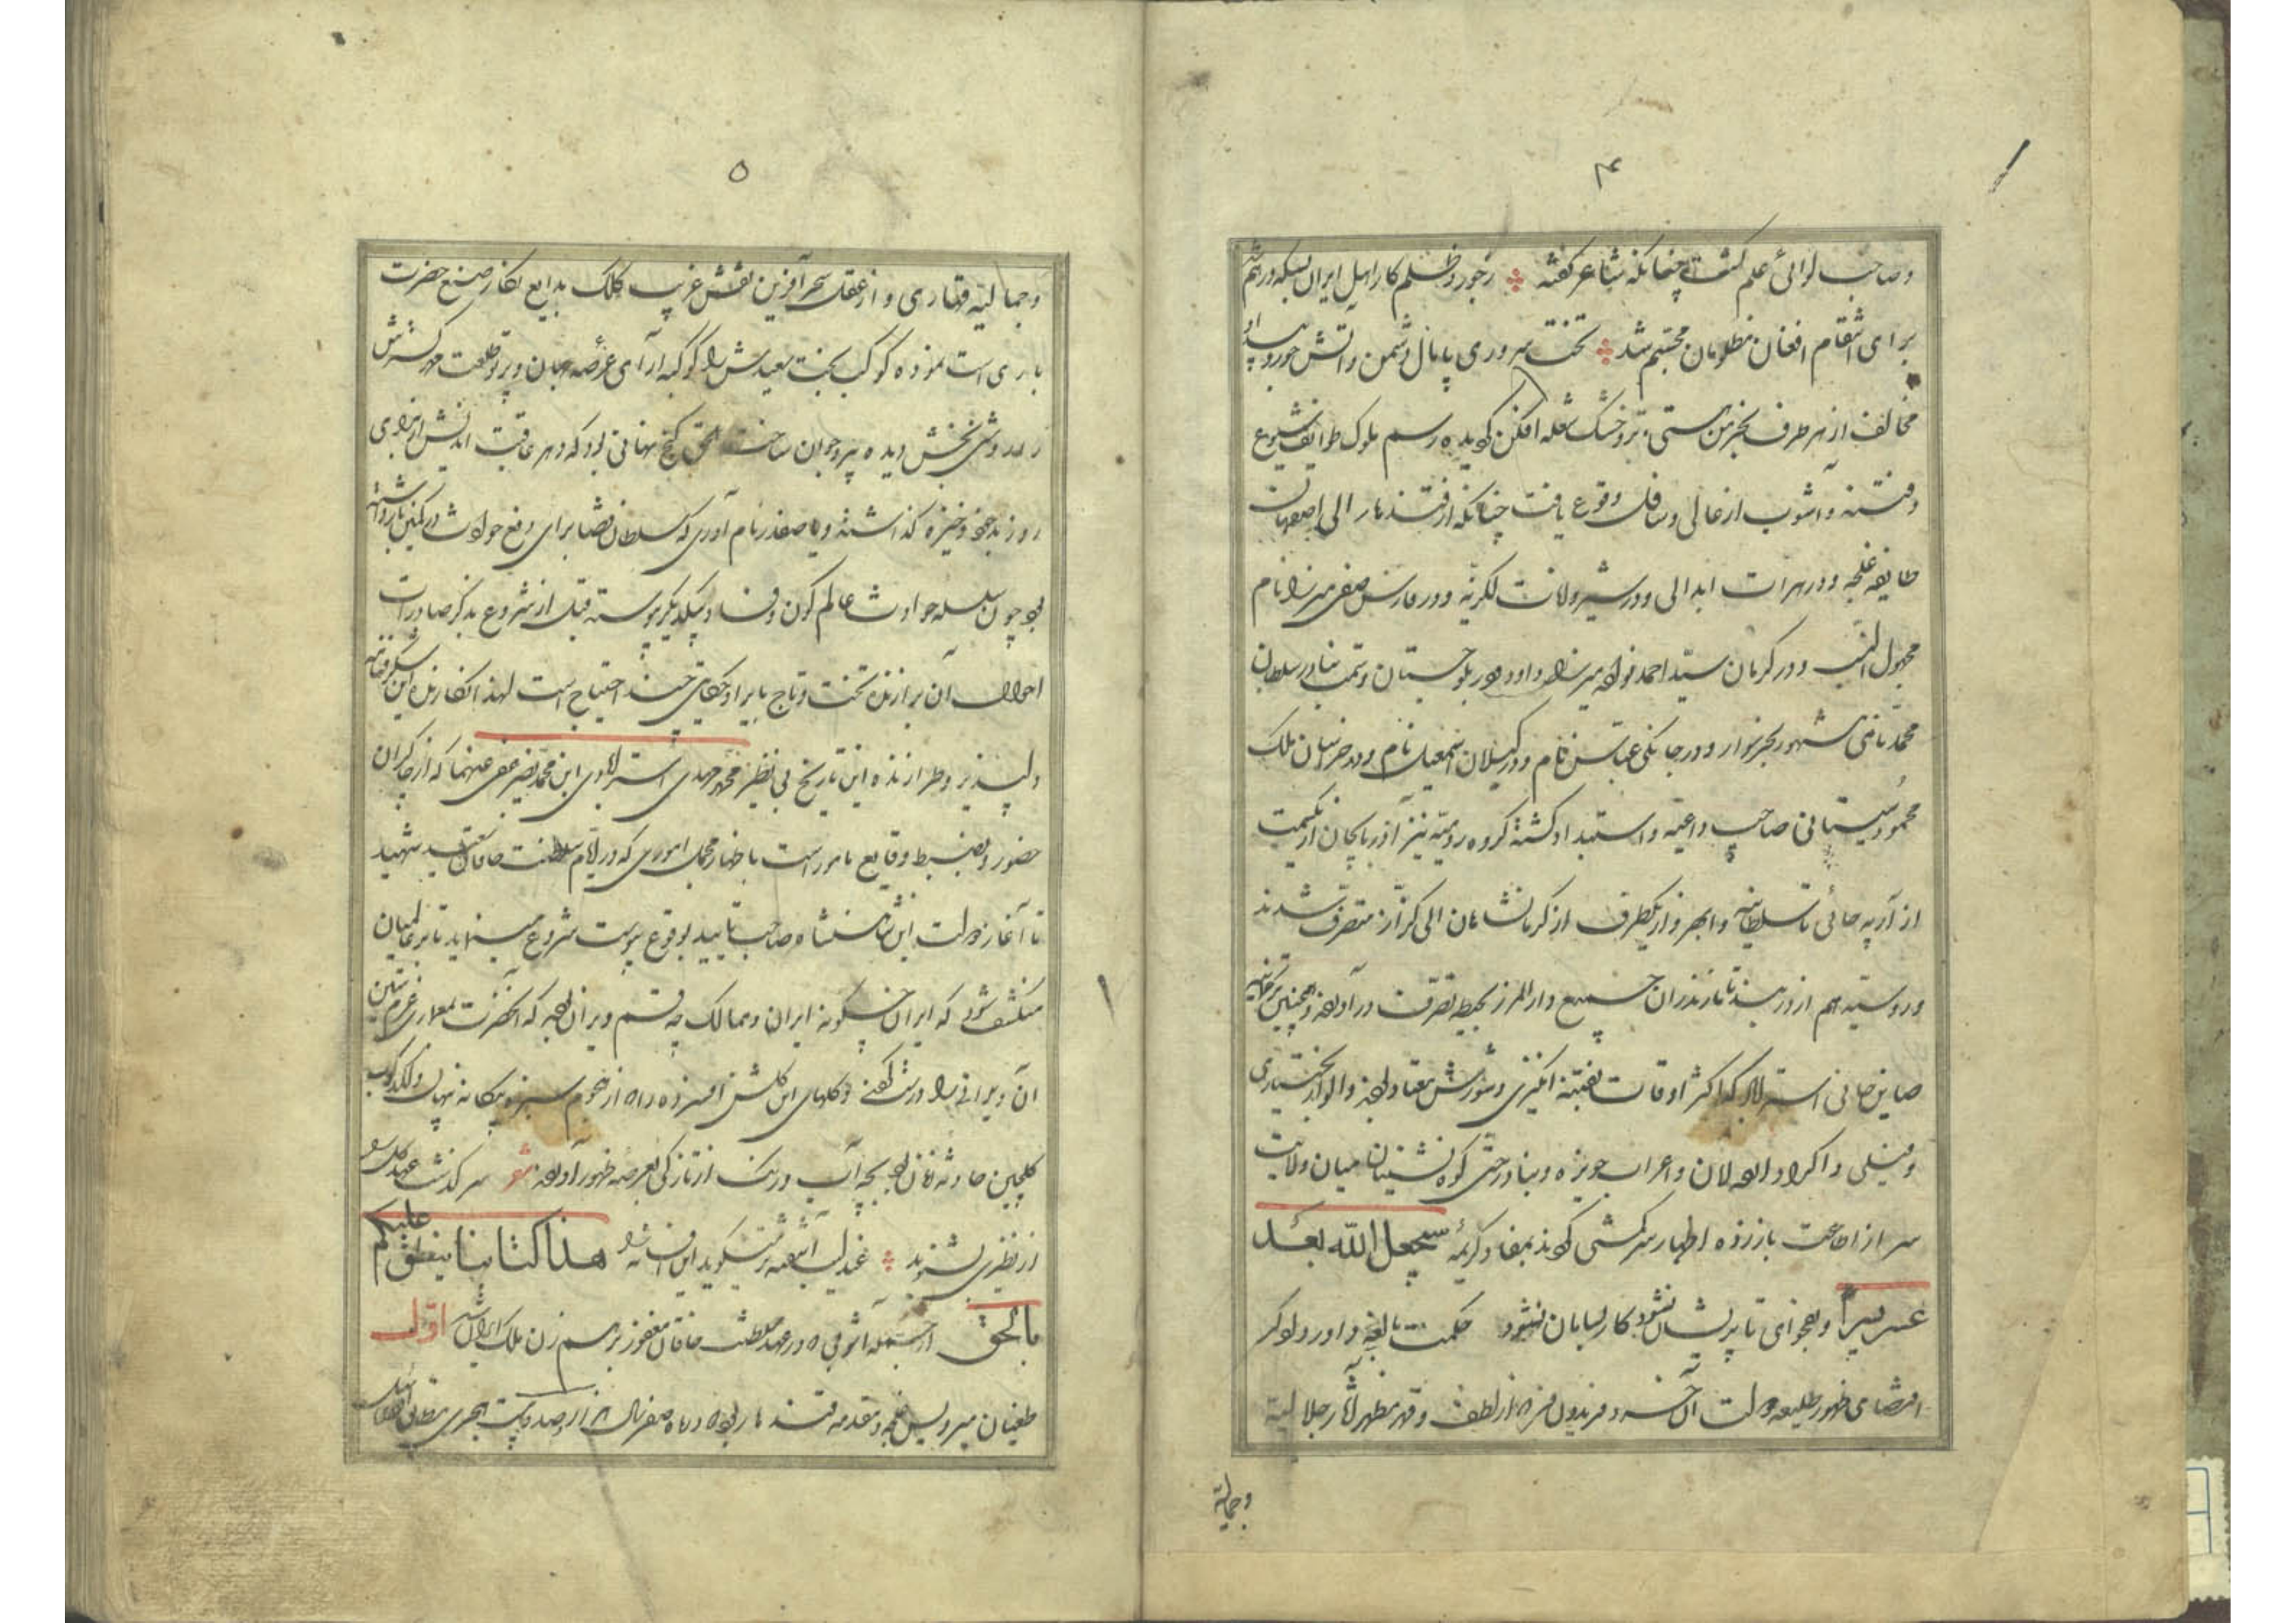 ۴
وصاحب لوائی علم گشت چنانکه شاعر گفته زجور و ظلم کار اهل ایران بسکه درهم شد
برای انتقام افغان مظلومان مجسم شد تخت سروری پامال دشمن واتش جور وبیداد
مخالف از هر طرف بخرمن هستی تر و خشک شعله افکن کردیده رسم ملوک طوایف شیوع
وفتنه و آشوب از عالی وسافل وقوع یافت چنانکه از قندهار الی اصفهان
طایفه غلجه ودر هرات ابدالی ودر شیروانات لکزیه ودر فارس صفی میرزا نام
مجهول النسب ودر کرمان سید احمد نواده میرزا داود ودر بلوچستان وتمت بنادر سلطان
محمد نامی مشهور بخرسوار ودر جانکی عباس نام ودر کیلان اسمعیل نام ودر خراسان ملک
محمود سیستانی صاحب داعیه واستبداد کشته کروه رومیه نیز آذربایجان از یکسمت
از آرپه چائی تا سلطانیه وابهر واز یکطرف از کرمانشاهان الی کزاز متصرف شدند
وروسیه هم از دربند تا مازندران جمیع دار المرز بحیطه تصرف در آورده وهمچنین ترکمانیه
صاین خانی استراباد که اکثر اوقات بفتنه انکیزی وشورش معتاد بوده والوار بختیاری
وفیلی واکراد اردلان واعراب حویزه وبنادر حتی کوه نشینان میان ولایت
سر از اطاعت باز زده اظهار سرکشی کردند بمفاد کریمه سیجعل الله بعد
عسر یسرا وبفحوای تا پریشان نشود کار بسامان نشود حکمت بالغه داور دادکر
اقتضای ظهور طلیعه دولت آن خسرو فریدون فر را از لطف وقهر مظهر آثار جلالیه
وجمالیه
۵
وجمالیه قهاری و از عقل سحر آفرین نقش غریب کلک بدایع نکار صنع حضرت
باری است نموده کوکب بخت سعیدش را کوکبه آرای عرصه جهان وپرتو طلعت مهر کسترش
را روشنی بخش دیده پیر وجوان ساخت الحق کنج نهانی بود که دهر عاقبت اندیش از برای
روز بد خود ذخیره کذاشته ویا صفدر نام آوری که سلطان قضا برای دفع حوادث در کمین بازداشته
بود چون سلسله حوادث عالم کون وفساد بیکدیکر پیوسته قبل از شروع بذکر صادرات
احوال آن برازنده تخت وتاج بایراد حکایتی چند احتیاج است لهذا نکارنده این شکرفنامه
دلپذیر وطرازنده این تاریخ بی نظیر محمد مهدی استرابادی ابن محمد نصیر عفی عنهما که از چاکران
حضور وبضبط وقایع مامور است باظهار مجمل اموری که در ایام سلطنت خاقان سعید شهید
تا آغاز دولت این شاهنشاه صاحب تایید بوقوع پیوست شروع مینماید تا بر عالمیان
منکشف شود که ایران چکونه ایران وممالک چه قسم ویران بوده که آنحضرت بمعماری عزم متین
آن ویرانی را درست کرده وکلهای این کلشن افسرده را که از هجوم سبزه بیکانه نهان ولکدکوب
کلچین حادثه خزان بود بچه آب ورنک از تازکی بعرصه ظهور آورده شعر سرکذشت عهد کل را
از نظیری بشنوید عندلیب آشفته تر میکوید این افسانه را هذا کتابنا ینطق علیکم
بالحق از جمله آشوبی که در عهد سلطنت خاقان مغفور بر هم زن ملک ایران شد اول
طغیان میرویس غلجه ومقدمه قندهار بود که در ماه صفر سال هزار وصد وبیست هجری مطابق